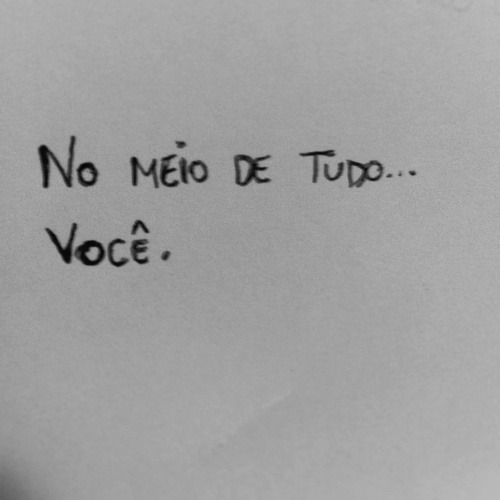 No MEiO DE TUDO...
VOCÊ.